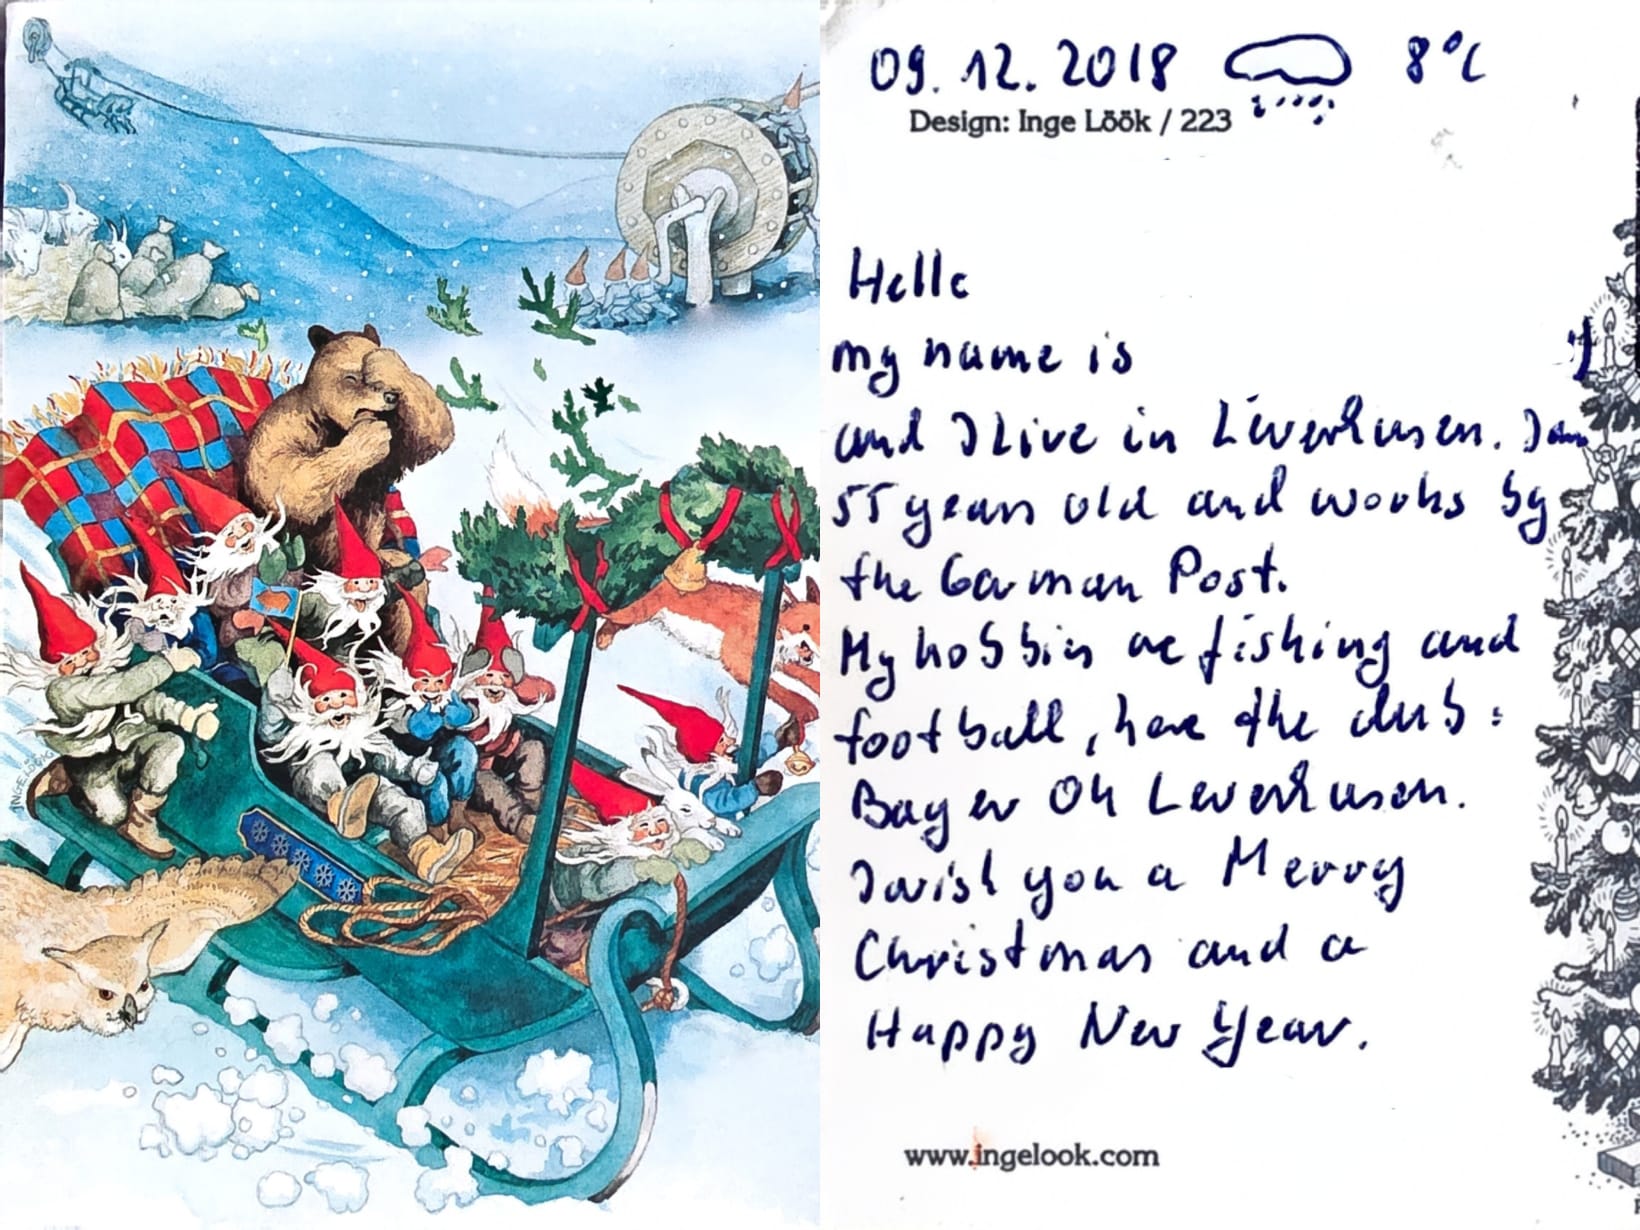 INGE LÖÖK
09.12.2018 8°C
Design: Inge Löök / 223
Hello
my name is :)
and I Live in Leverkusen. I am
55 years old and works by
the German Post.
My hobbies are fishing and
football, here the club:
Bayer 04 Leverkusen.
I wish you a Merry
Christmas and a
Happy New Year.
www.ingelook.com